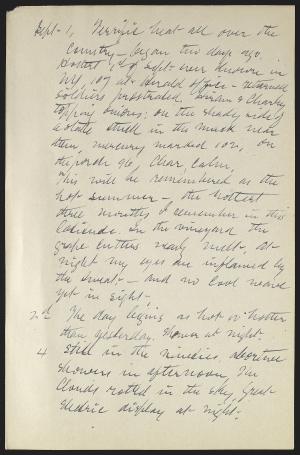 Sept. 1, Terrific heat all over the
country - began two days ago.
Hottest 1st of Sept. ever known in
N.Y. 107 at Herald office - returned
soldiers prostrated. Hiram & Charley
topping onions; on the shady side of
a stalk stuck in the muck near
them, mercury marked 102, on
the porch 96, clear calm,
This will be remembered as the
hot summer - the hottest
three months I remember in this
latitude. In the vineyard the
grape cutters nearly melt. At
night my eyes are inflamed by
the sweat - and no cool wave
yet in sight -
2nd The day begins as hot or hotter
than yesterday. Shower at night.
4 Still in the nineties, abortive
showers in afternoon, The
clouds rotted in the sky, Great
electric display at night.